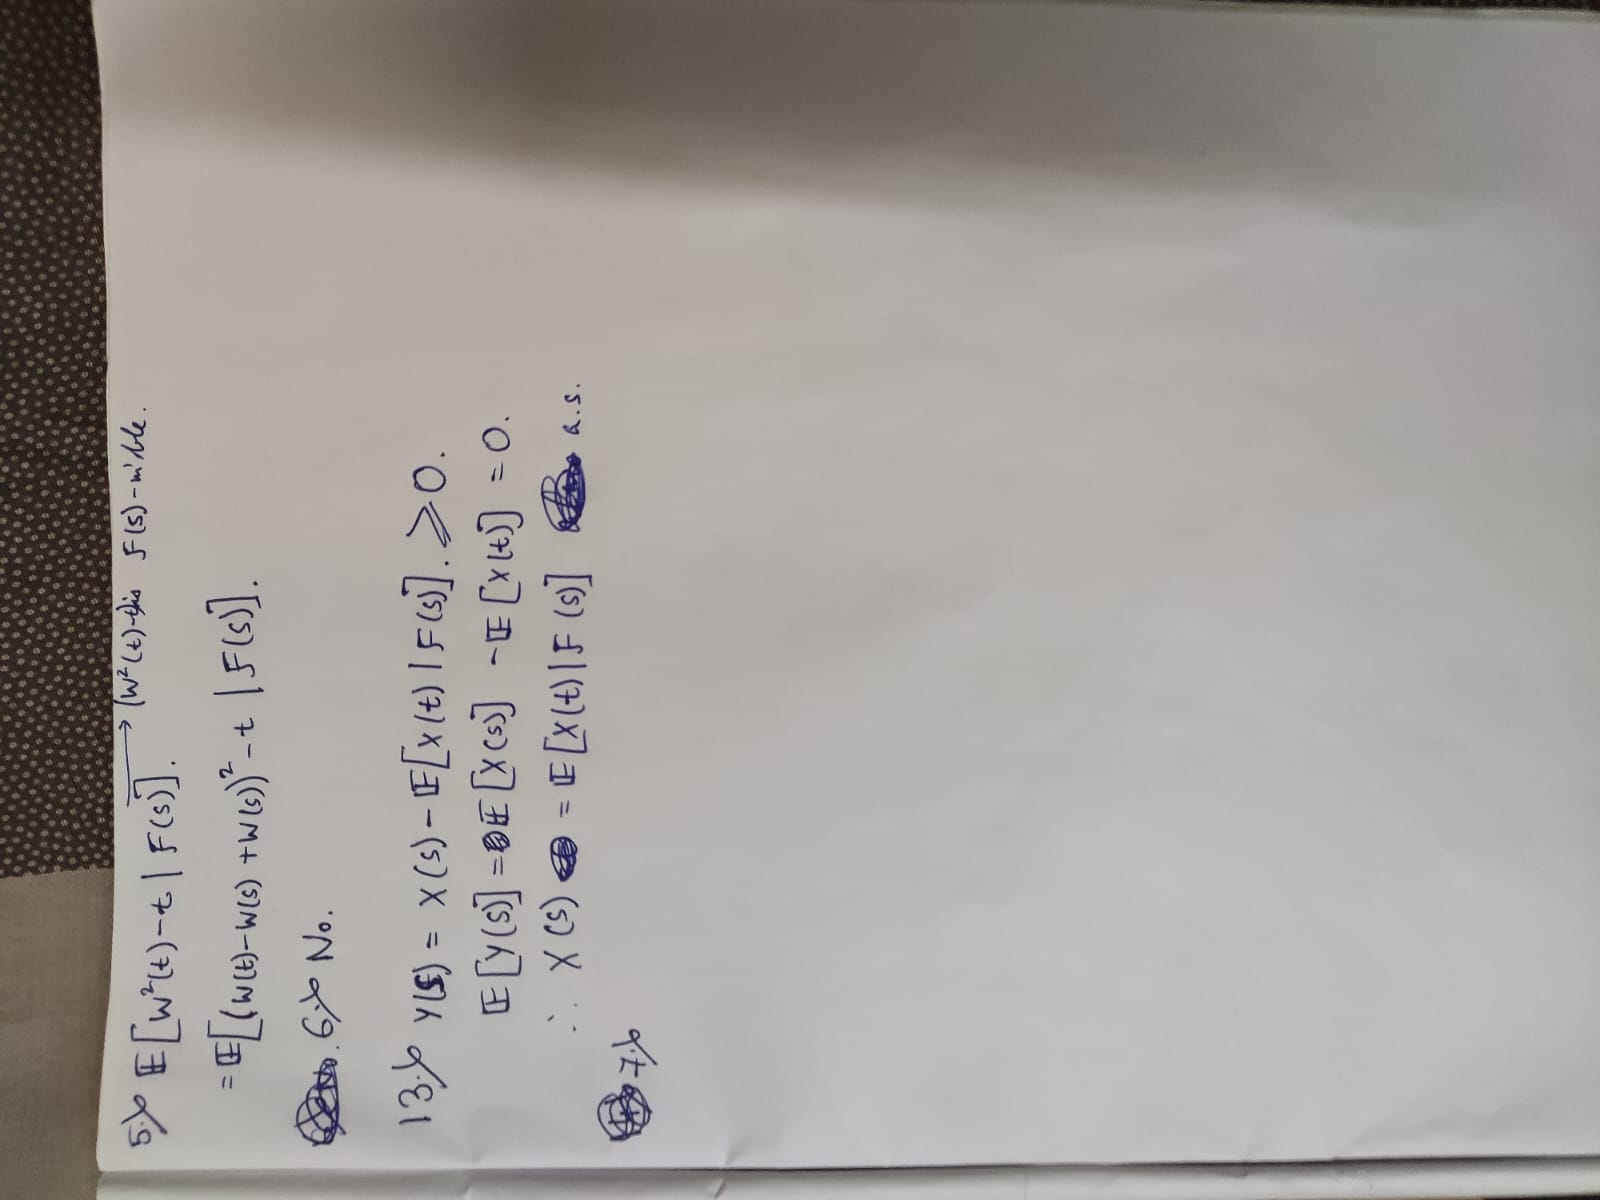 5.) 𝔼[W²(t)-t | F(s)]. → (W²(t)-t) is F(s)-m'ble.
= 𝔼[(W(t)-W(s)+W(s))²-t | F(s)].
6.) No.
13.) Y(s) = X(s) - 𝔼[X(t) | F(s)]. ⩾ 0.
𝔼[Y(s)] = 𝔼[X(s)] - 𝔼[X(t)] = 0.
∴ X(s) = 𝔼[X(t) | F(s)] a.s.
7.)